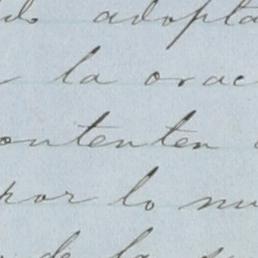 adopta
la orac
ontenten
por lo
de la